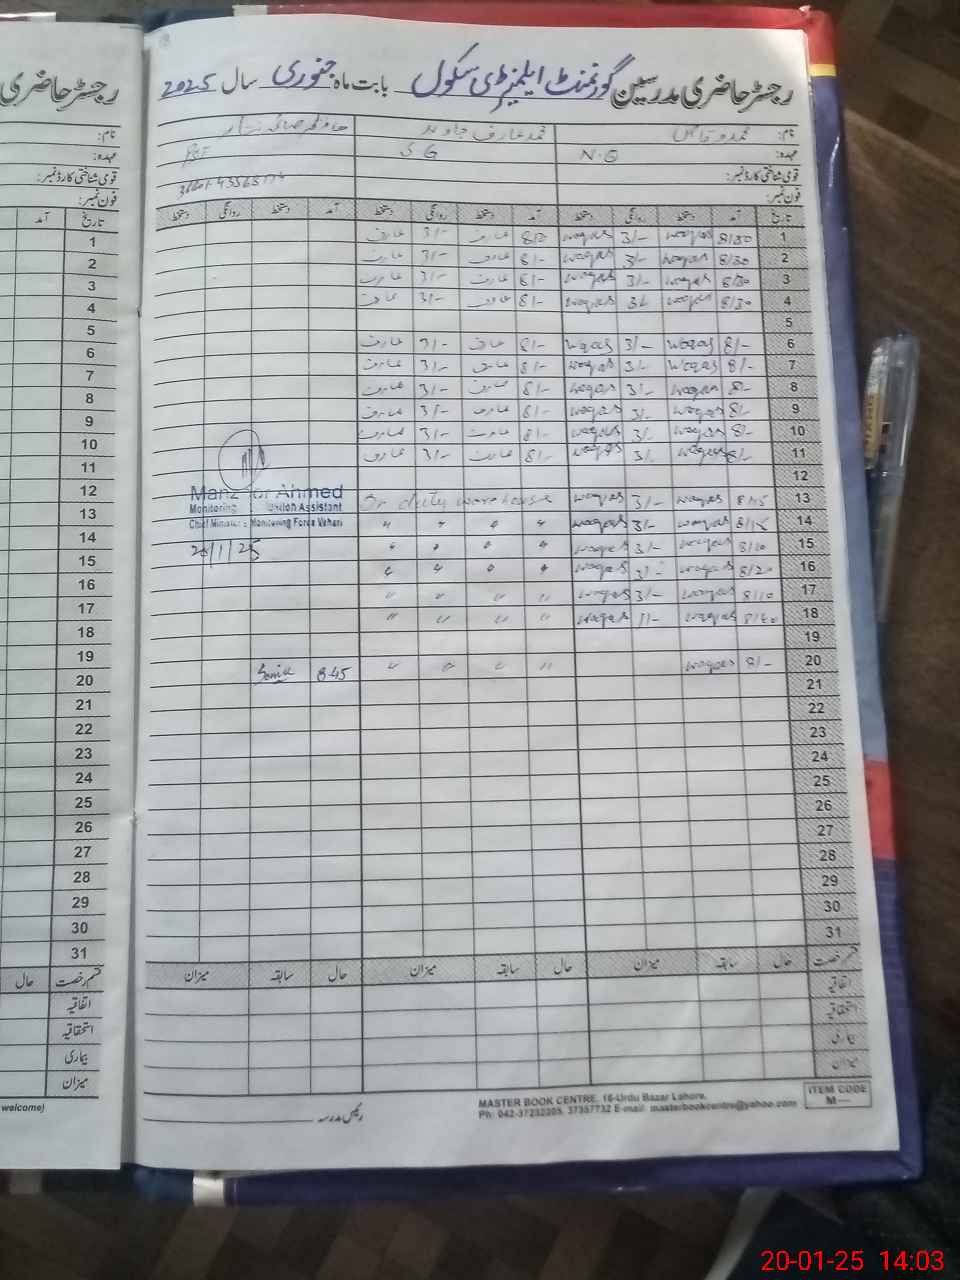 رجسٹر حاضری مدرسین گورنمنٹ ایلیمنٹری سکول بابت ماہ جنوری سال 2025
رجسٹر حاضری
نام: محمد وقاص محمد عارف جاوید
عہدہ: N.G S G
قومی شناختی کارڈ نمبر:
فون نمبر:
تاریخ آمد دستخط روانگی دستخط آمد دستخط روانگی دستخط آمد دستخط روانگی دستخط
1 8/30 waqas 3/- waqas عارف 3/- عارف
2 8/30 waqas 3/- waqas 8/- عارف 3/- عارف
3 8/30 waqas 3/- waqas 8/- عارف 3/- عارف
4 8/30 waqas 3/- waqas 8/- عارف 3/- عارف
5
6 8/- waqas 3/- waqas 8/- عارف 3/- عارف
7 8/- waqas 3/- waqas 8/- عارف 3/- عارف
8 8/- waqas 3/- waqas 8/- عارف 3/- عارف
9 8/- waqas 3/- waqas 8/- عارف 3/- عارف
10 8/- waqas 3/- waqas 8/- عارف 3/- عارف
11 8/- waqas 3/- waqas 8/- عارف 3/- عارف
12
13 waqas 3/- waqas On duty warehouse
14 8/15 waqas 3/- waqas " " " "
15 waqas 3/- waqas " " " "
16 8/20 waqas 3/- waqas " " " "
17 8/10 waqas 3/- waqas " " " "
18 waqas waqas " " " "
19
20 8/- waqas " " " " 8:45
21
22
23
24
25
26
27
28
29
30
31
Ahmed
Monitoring Assistant
Chief Minister's Monitoring Force Vehari
قسم رخصت حال سابقہ میزان حال سابقہ میزان حال سابقہ میزان
اتفاقیہ
استحقاقیہ
بیماری
میزان
رئیس مدرسہ
MASTER BOOK CENTRE, 16-Urdu Bazar Lahore.
Ph: 042-37232205, 37357732 E-mail: masterbookcentre@yahoo.com
ITEM CODE
M—
نام:
عہدہ:
قومی شناختی کارڈ نمبر:
فون نمبر:
تاریخ آمد
1
2
3
4
5
6
7
8
9
10
11
12
13
14
15
16
17
18
19
20
21
22
23
24
25
26
27
28
29
30
31
قسم رخصت حال
اتفاقیہ
استحقاقیہ
بیماری
میزان
welcome)
20-01-25 14:03